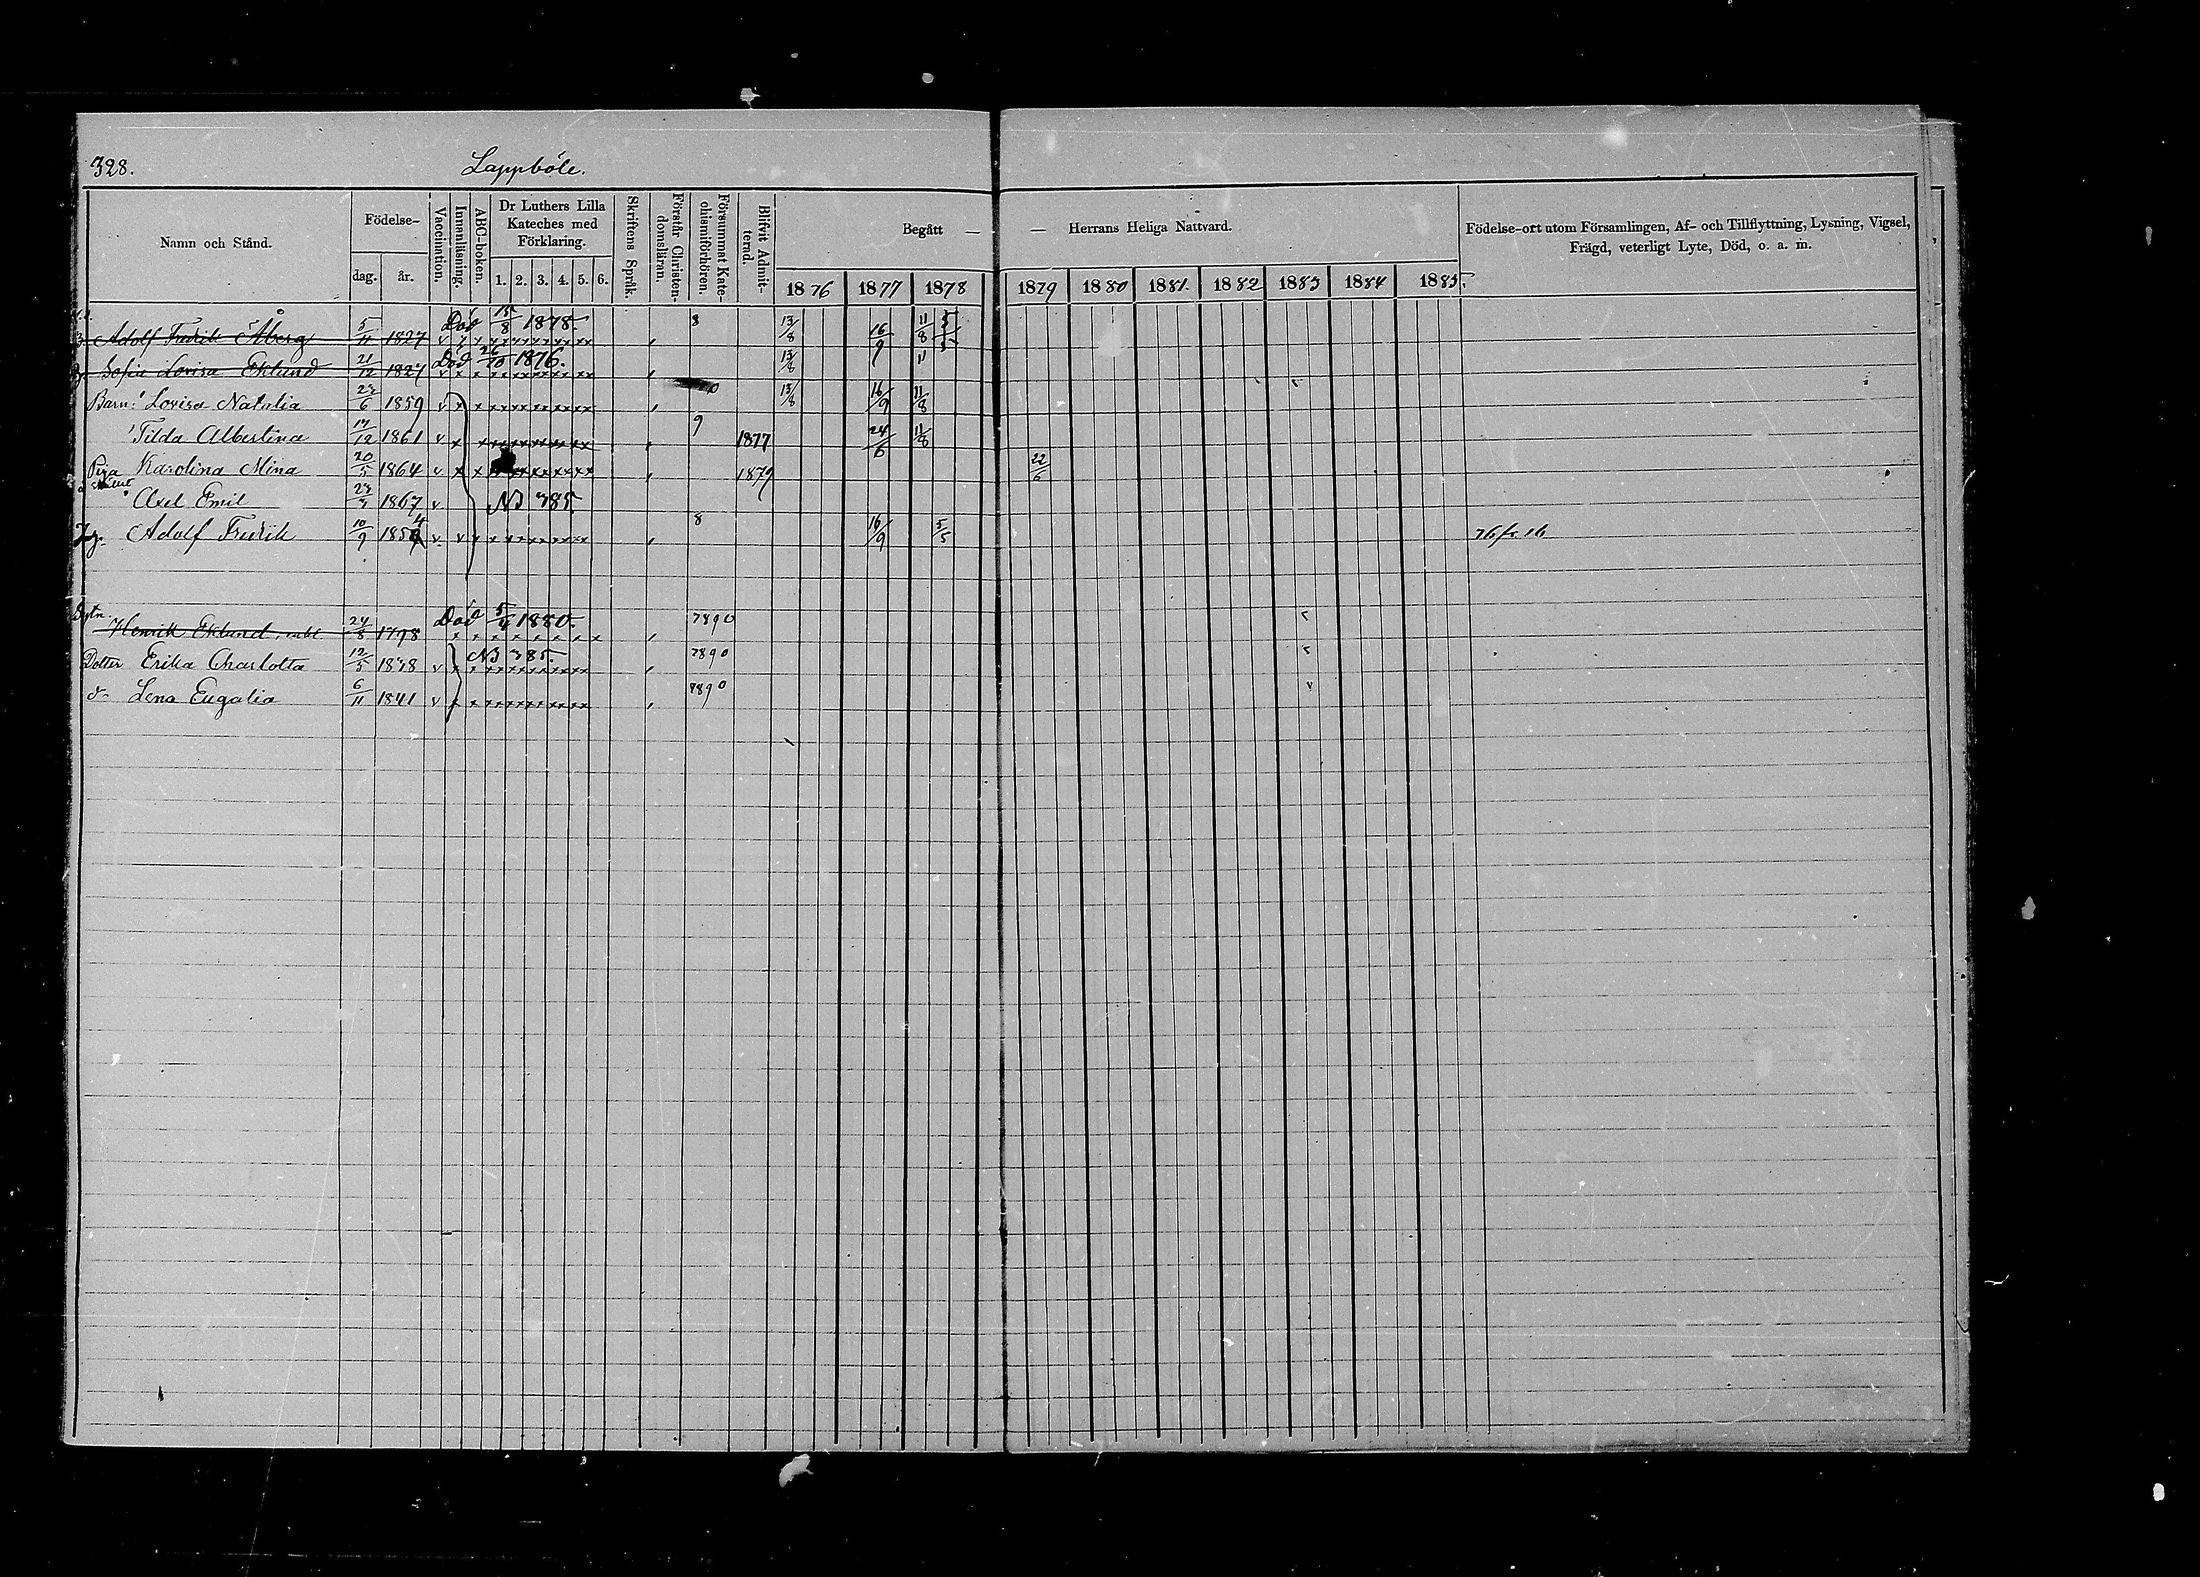 328. Lappböle.
Namn och Stånd. Födelse- dag. år. Vaccination. Innanläsning. ABC-boken. Dr Luthers Lilla Kateches med Förklaring. 1. 2. 3. 4. 5. 6. Skriftens Språk. Förstår Christendomsläran. Försummat Katechismiförhören. Blifvit Admitterad. Begått — — Herrans Heliga Nattvard. Födelse-ort utom Församlingen, Af- och Tillflyttning, Lysning, Vigsel, Frägd, veterligt Lyte, Död, o. a. m.
1876 1877 1878 1879 1880 1881 1882 1883 1884 1885.
Adolf Fredrik Åberg 5/11 1827 Död 15/8 1878. 8 13/8 16/9 11/8 5/5
Sofia Lovisa Eklund 21/12 1827 Död 26/10 1876. 13/8 11
Barn: Lovisa Natalia 23/6 1859 v 13/8 16/9 11/8
Tilda Albertina 17/12 1861 v 9 1877 24/6 11/8
Piga Karolina Mina 20/5 1864 v 1879 22/6
Axel Emil 1867 v N3 385.
Adolf Fredrik 10/9 1854 v 8 16/9 5/5 76 fr. 16
Henrik Eklund, 24/8 1798 Död 5/4 1880. 7890
Dotter Erika Charlotta 12/5 1838 v N3 385. 7890
d:o Lena Eugalia 6/11 1841 v 7890